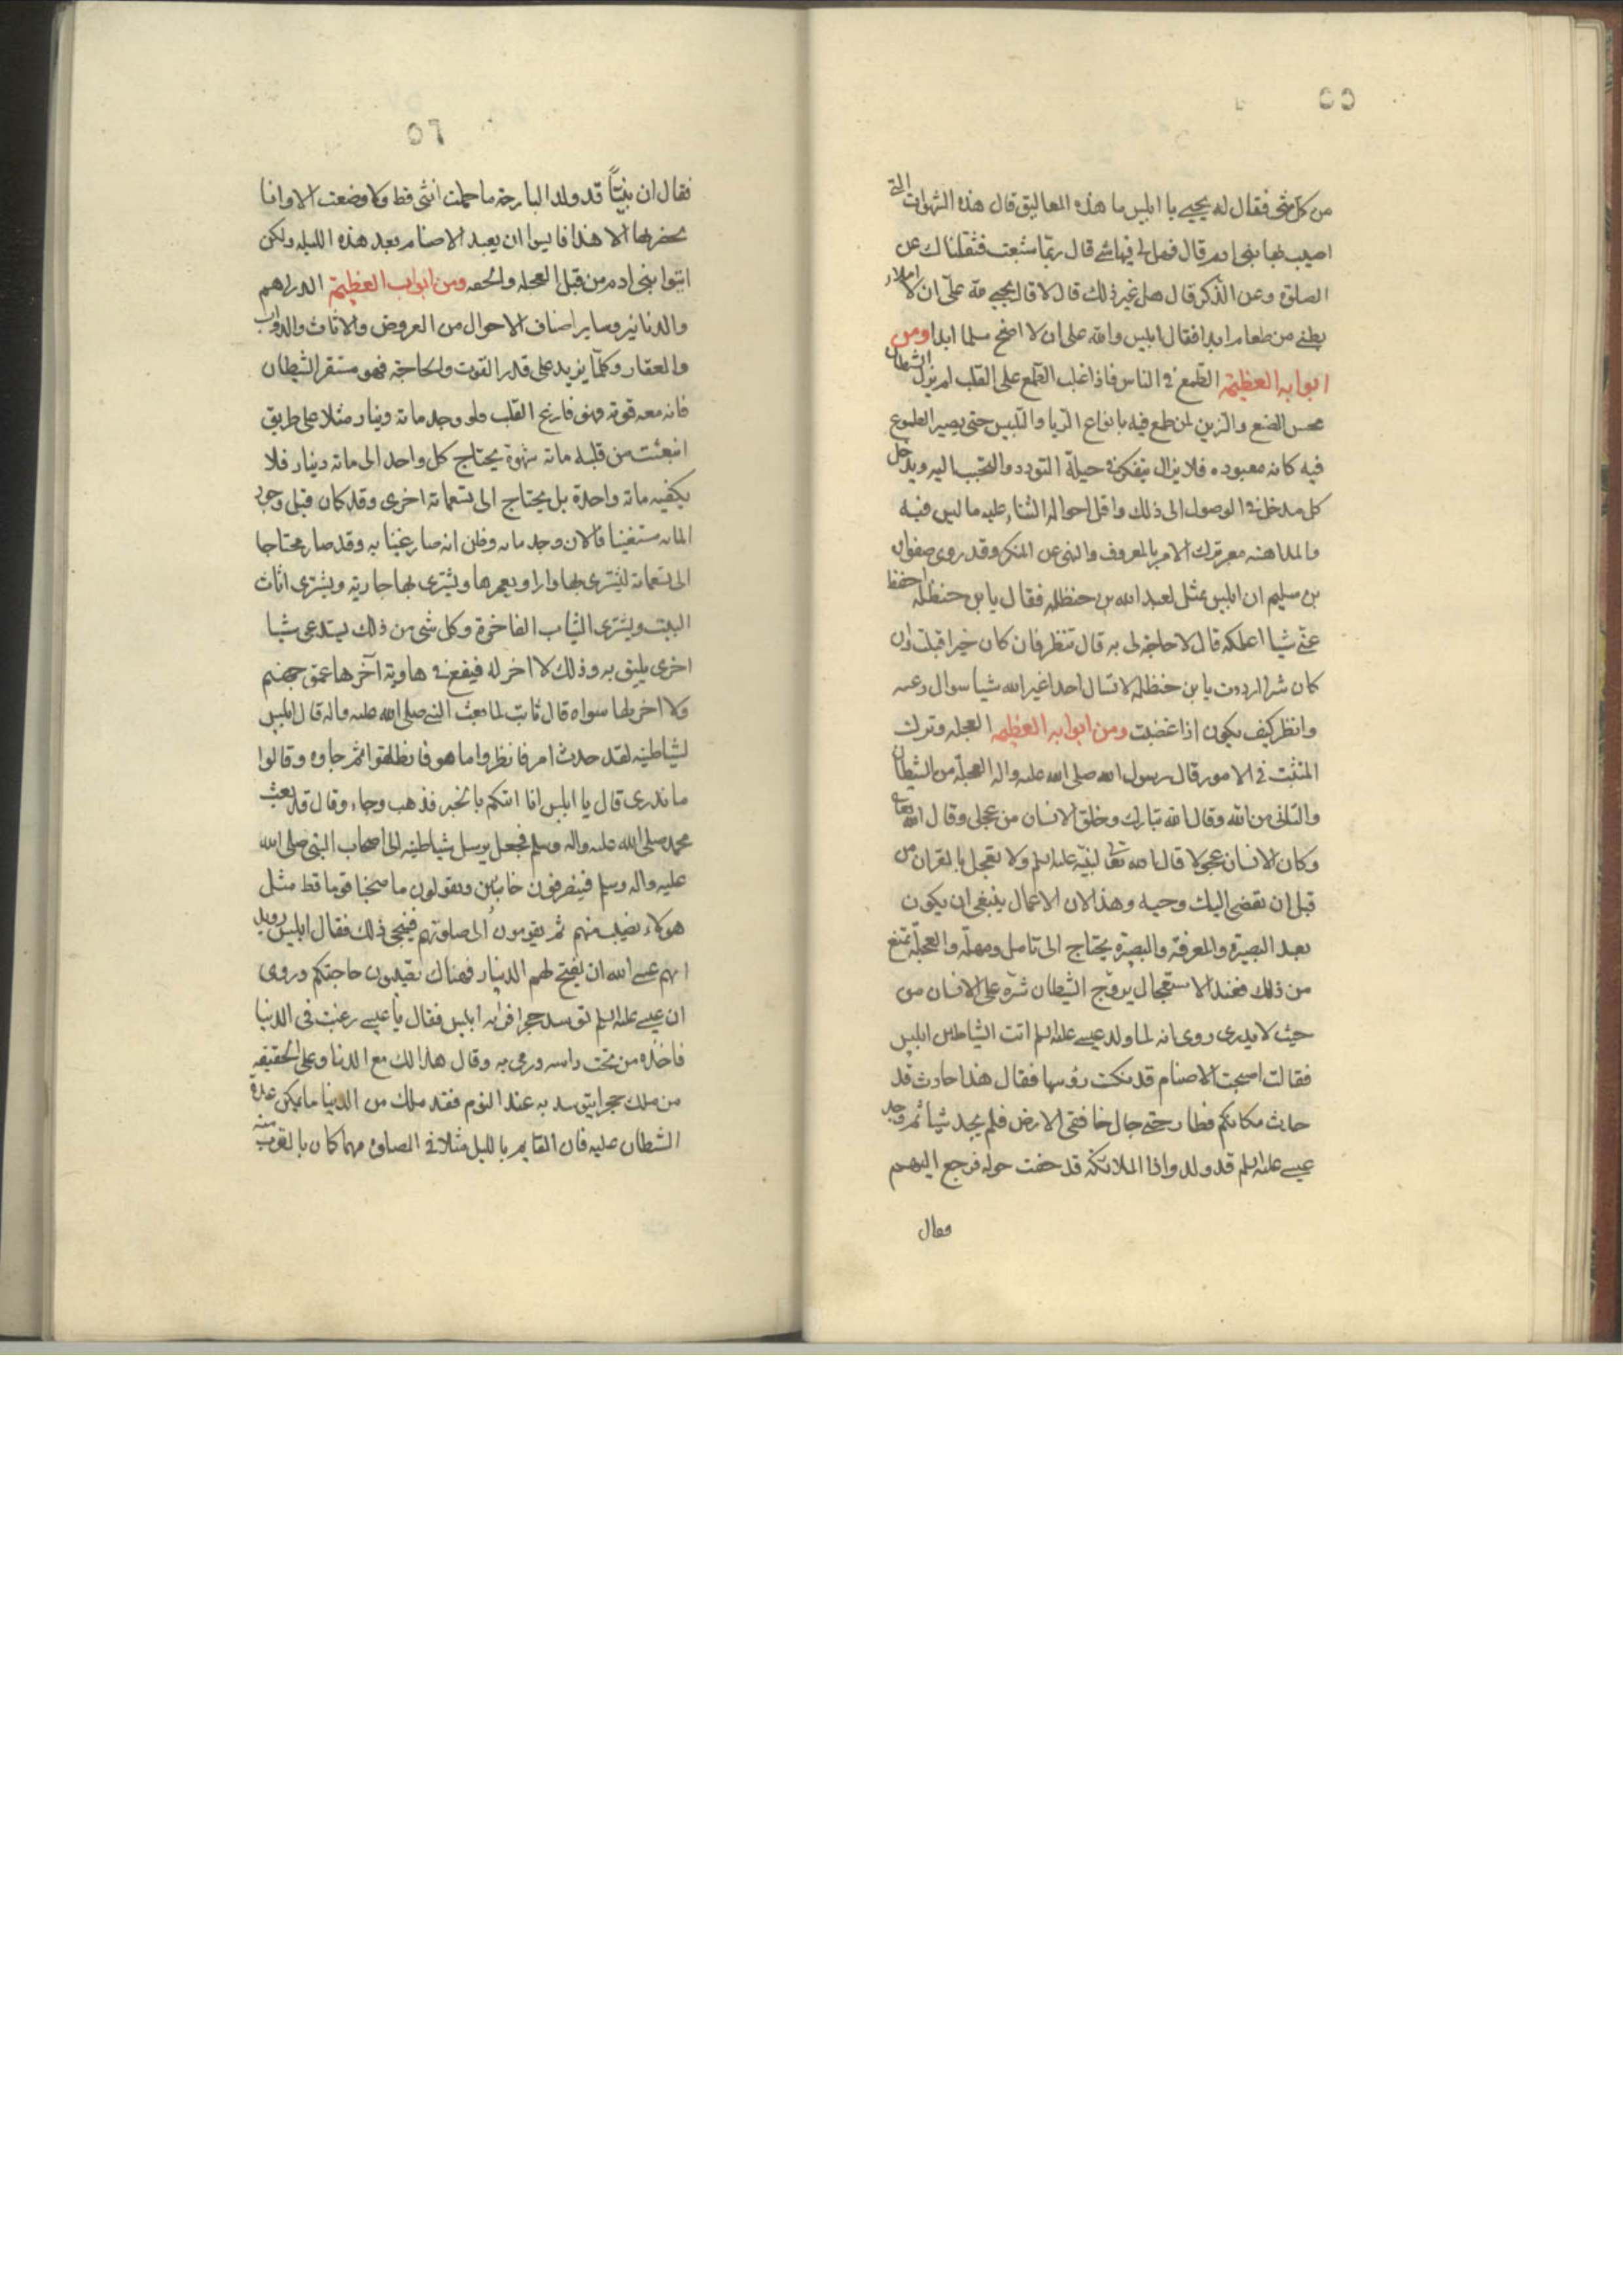 ٥٥
من كل شى فقال له يحيى يا ابليس ما هذه المعاليق قال هذه الشهوات التى
اصيب بها بنى ادم قال فهل لى فيها شى قال ربما شبعت فثقلناك عن
الصلوة وعن الذكر قال هل غير ذلك قال لا قال يحيى لله على ان لا املاء
بطنى من طعام ابدا فقال ابليس ولله على ان لا انصح مسلما ابدا ومن
ابوابه العظيمة الطمع فى الناس فاذا غلب الطمع على القلب لم يزل الشيطان
يحسن التصنع والتزين لمن طمع فيه بانواع الريا والتلبيس حتى يصير المطموع
فيه كانه معبوده فلا يزال يتفكر فى حيلة التودد والتحبب اليه ويدخل
كل مدخل فى الوصول الى ذلك واقل احواله الثناء عليه ما ليس فيه
والمداهنه معه بترك الامر بالمعروف والنهى عن المنكر وقد روى صفوان
بن سليم ان ابليس تمثل لعبد الله بن حنظله فقال يا بن حنظله احفظ
عنى شيا اعلمكه قال لا حاجة لى به قال تنظر فان كان خيرا قبلت وان
كان شرا رددت يا بن حنظله لا تسال احدا غير الله شيا سوال رغبه
وانظر كيف يكون اذا غضبت ومن ابوابه العظيمه العجله وترك
التثبت فى الامور قال رسول الله صلى الله عليه واله العجلة من الشيطان
والتانى من الله وقال الله تبارك وخلق الانسان من عجل وقال الله تعالى
وكان الانسان عجولا قال الله تعالى لنبيه عليه السلم ولا تعجل بالقران من
قبل ان يقضى اليك وحيه وهذا لان الاعمال ينبغى ان يكون
بعد البصيرة والمعرفة والبصيرة يحتاج الى تامل ومهلة والعجلة تمنع
من ذلك فعند الاستعجال يروج الشيطان شره على الانسان من
حيث لا يدرى روى انه لما ولد عيسى عليه السلم اتت الشياطين ابليس
فقالت اصبحت الاصنام قد نكست رؤسها فقال هذا حادث قد
حدث مكانكم فطار حتى جال خافقى الارض فلم يجد شيا ثم وجد
عيسى عليه السلم قد ولد واذا الملائكة قد حفت حوله فرجع اليهم
فقال
٥٦
فقال ان نبيًّا قد ولد البارحة ما حملت انثى قط ولا وضعت الا وانا
بحضرتها الا هذا فايسوا ان يعبد الاصنام بعد هذه الليله ولكن
ايتوا بنى ادم من قبل العجله والخفه ومن ابواب العظيمة الدراهم
والدنانير وساير اصناف الاحوال من العروض والاثاث والدواب
والعقار وكلما يزيد على قدر القوت والحاجة فهو مستقر الشيطان
فانه معه قوته فهو فارغ القلب فلو وجد ماة دينار مثلا على طريق
انبعثت من قلبه ماة شهوة يحتاج كل واحد الى ماة دينار فلا
يكفيه ماة واحدة بل يحتاج الى تسعماة اخرى وقد كان قبل وجود
المائه مستغنيا فالان وجد مائه وظن انه صار غنيا به وقد صار محتاجا
الى تسعماة ليشترى بها دارا ويعمرها ويشترى بها جارية ويشترى اثاث
البيت ويشترى الثياب الفاخرة وكل شى من ذلك يستدعى شيا
اخرى يليق به وذلك لا اخر له فيقع فى هاوية آخرها عمق جهنم
ولا اخر لها سواه قال ثابت لما بعث النبى صلى الله عليه واله قال ابليس
لشياطينه لقد حدث امر فانظروا ما هو فانطلقوا ثم جاوه وقالوا
ما ندرى قال يا ابليس انا اتيكم بالخبر فذهب وجاء وقال قد بعث
محمد صلى الله عليه واله وسلم فجعل يرسل شياطينه الى اصحاب النبى صلى الله
عليه واله وسلم فينصرفون خائبين ويقولون ما صحبنا قوما قط مثل
هولاء نصيب منهم ثم يقومون الى صلوتهم فيمحى ذلك فقال ابليس رويدا
بهم عسى الله ان يفتح لهم الدنيا فهناك تصيبون حاجتكم وروى
ان عيسى عليه السلم توسد حجرا فراه ابليس فقال يا عيسى رغبت فى الدنيا
فاخذه من تحت راسه ورمى به وقال هذا لك مع الدنيا وعلى الحقيقه
من ملك حجرا يتوسد به عند النوم فقد ملك من الدنيا ما يمكن عدة
الشيطان عليه فان القايم بالليل مثلا فى الصلوة مهما كان بالقرب منه